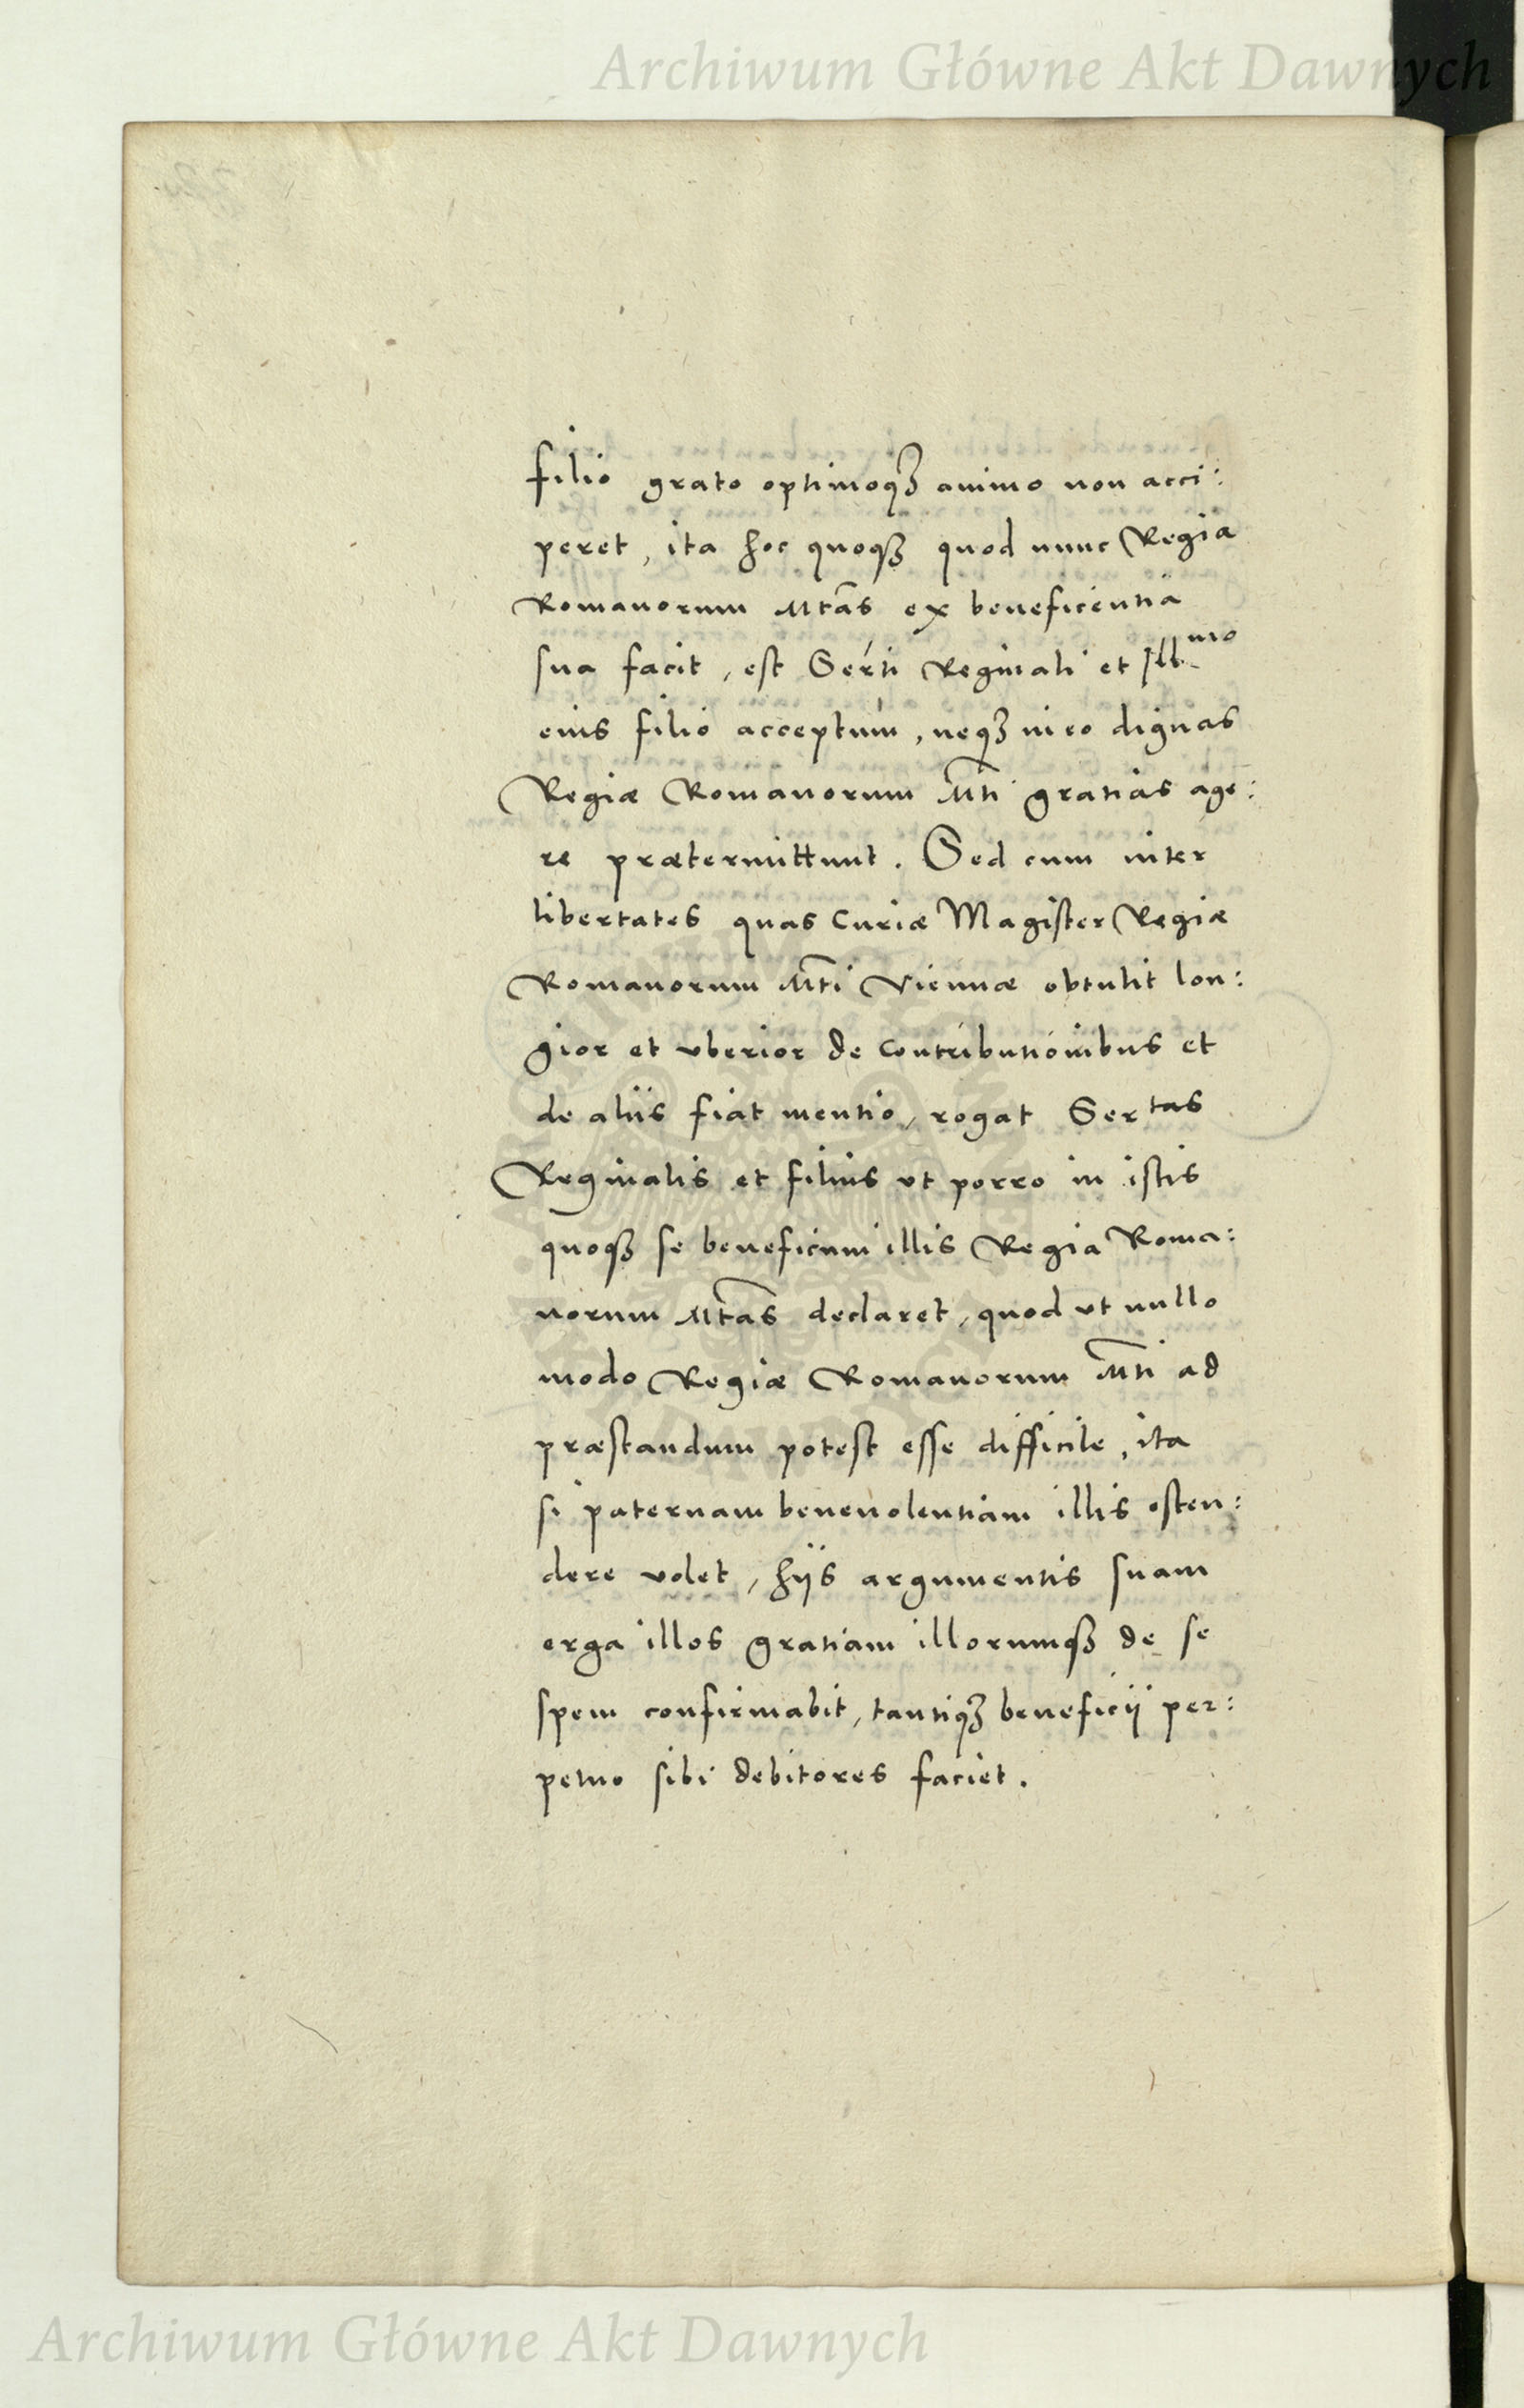 Archiwum Główne Akt Dawnych
filio grato optimoqꝫ animo non acci:
peret, ita hoc quoqꝫ quod nunc Regia
Romanorum Mtās ex beneficentia
sua facit, est Serti Reginali et Ill.mo
eius filio acceptum, neqꝫ in eo dignas
Regiæ Romanorum Mti gratias age:
re prætermittunt. Sed cum inter
libertates quas Curiæ Magister Regiæ
Romanorum Mti Viennæ obtulit lon:
gior et vberior de contributionibus et
de aliis fiat mentio, rogat Sertas
Reginalis et filius vt porro in istis
quoqꝫ se beneficum illis Regia Roma:
norum Mtas declaret, quod vt nullo
modo Regiæ Romanorum Mti ad
præstandum potest esse difficile, ita
si paternam beneuolentiam illis osten:
dere volet, hijs argumentis suam
erga illos gratiam illorumqꝫ de se
spem confirmabit, tantiqꝫ beneficij per:
petuo sibi debitores faciet.
Archiwum Główne Akt Dawnych